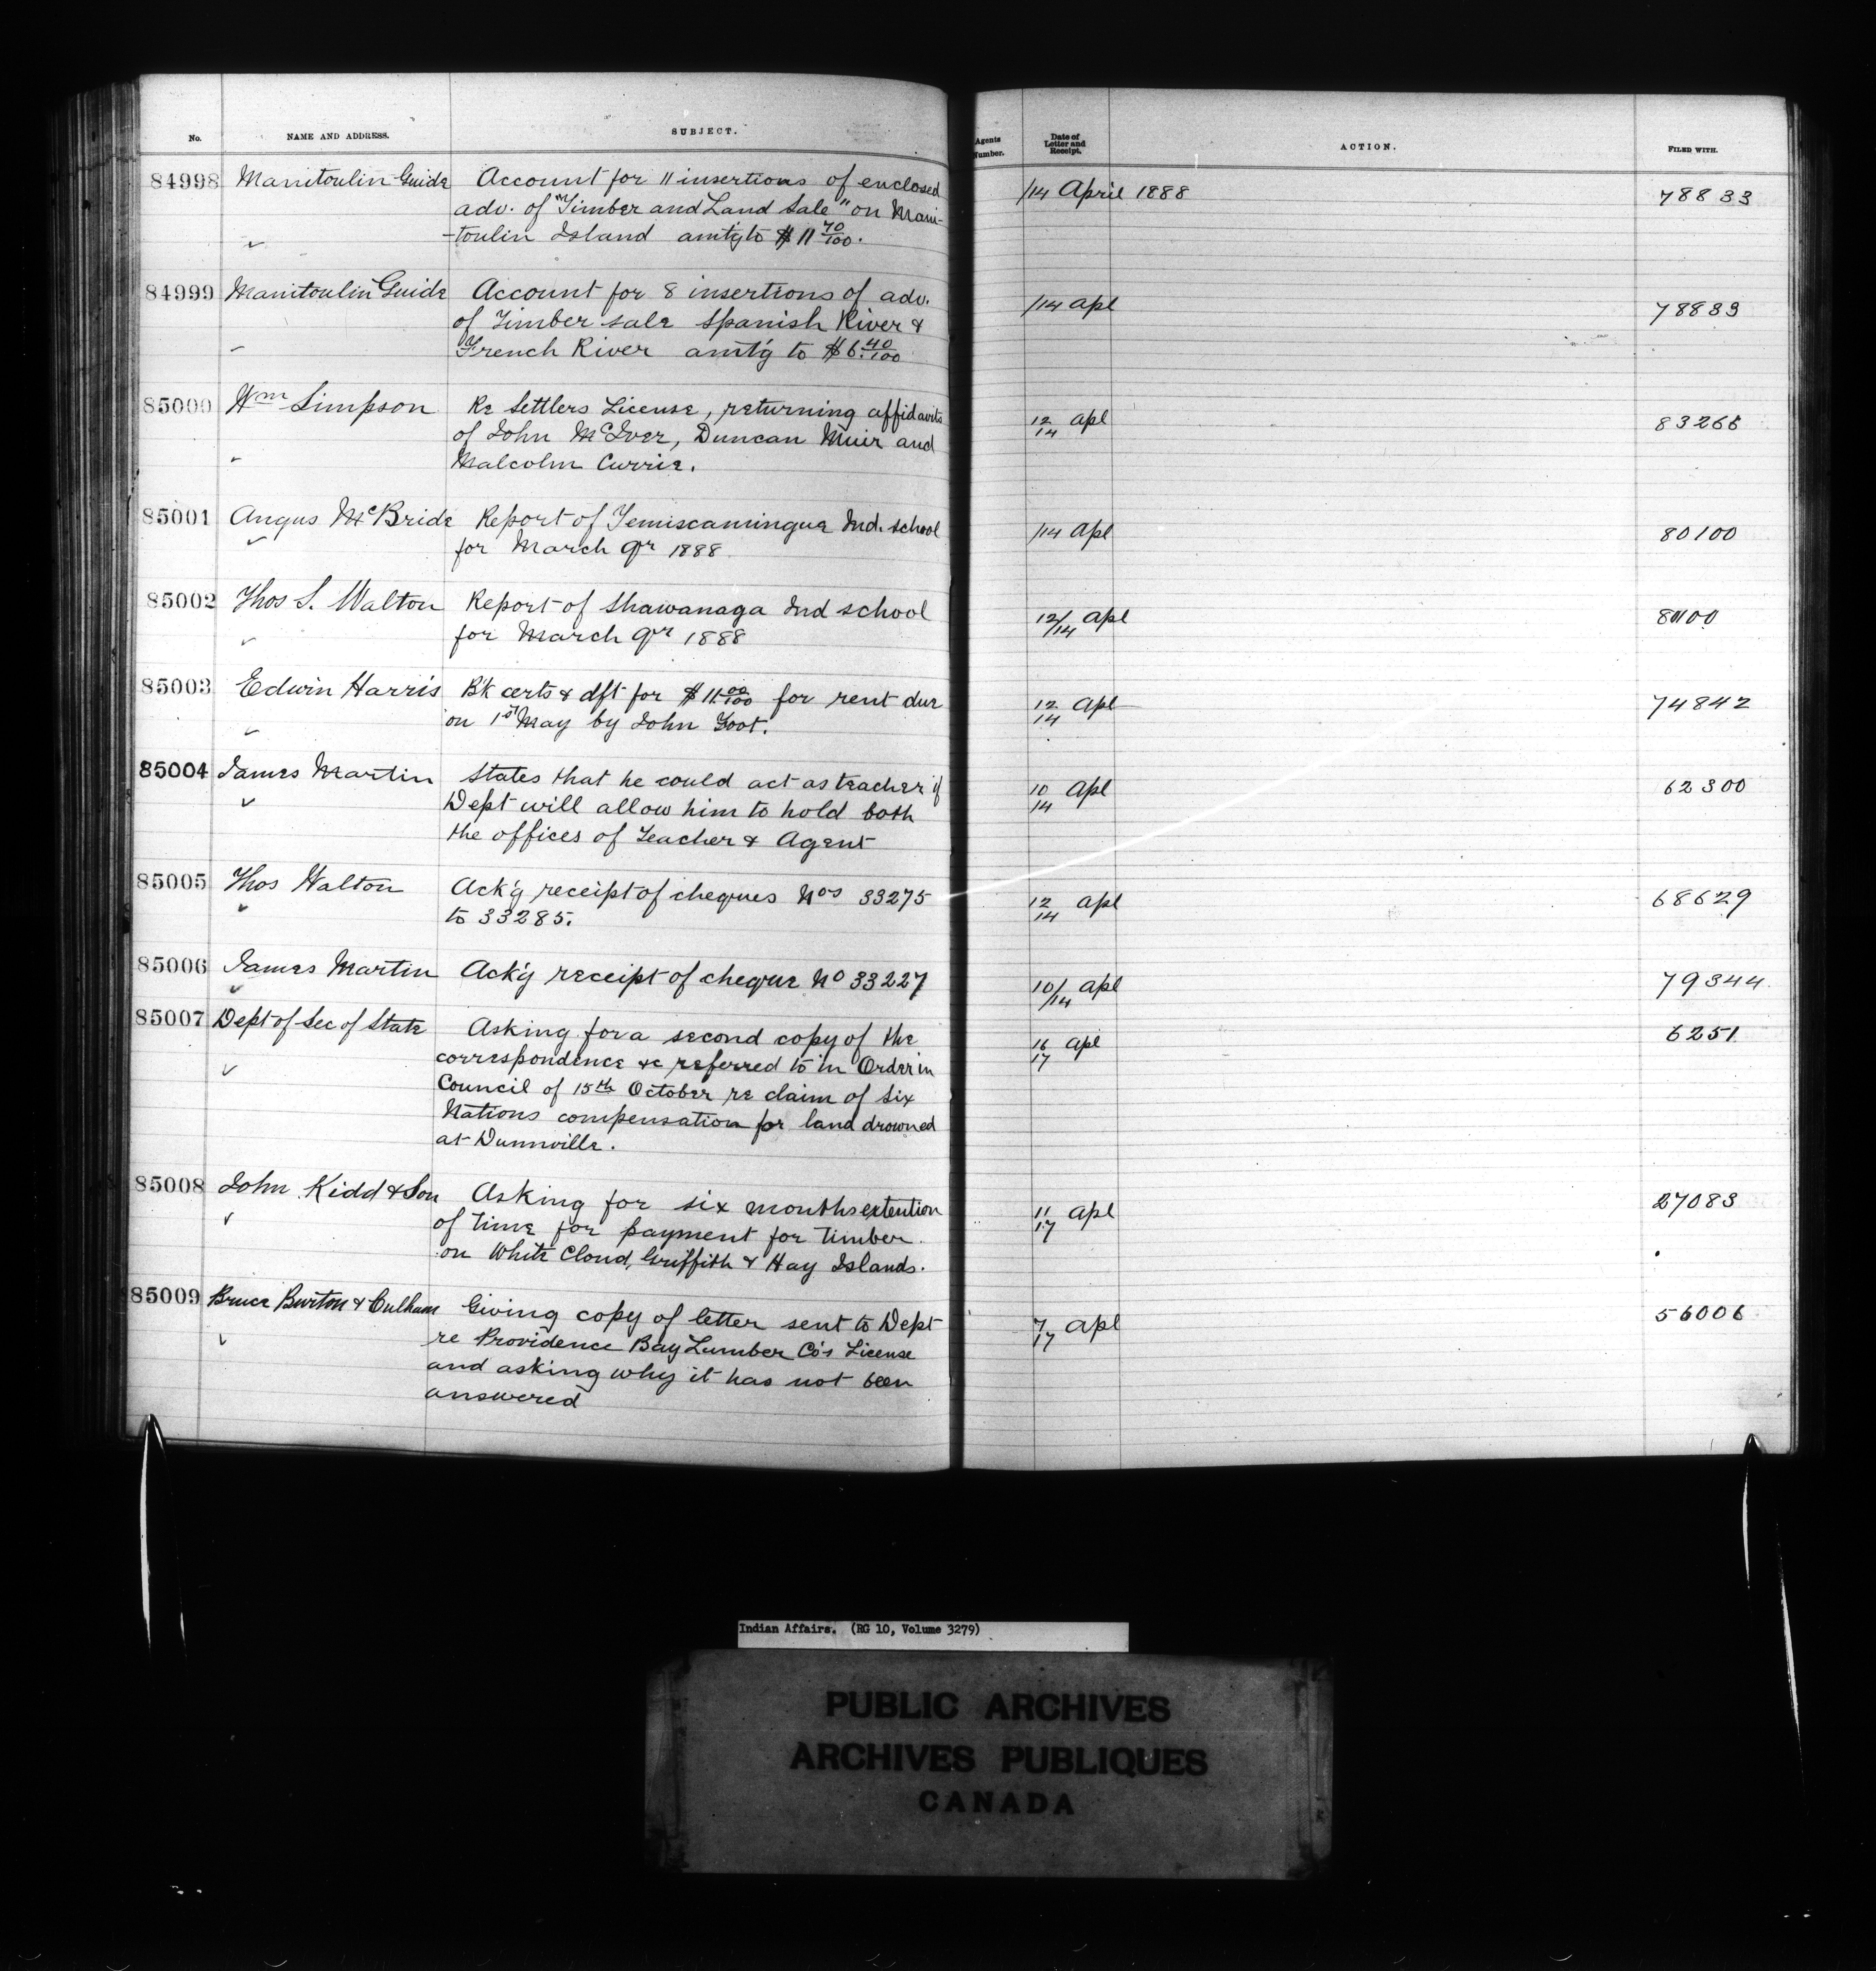 No. NAME AND ADDRESS. SUBJECT. Agents Number. Date of Letter and Receipt. ACTION. FILED WITH.
84998 Manitoulin Guide Account for 11 insertions of enclosed /14 April 1888 78833
adv. of "Timber and Land Sale" on Mani-
-toulin Island amtg to $11 70/100.
84999 Manitoulin Guide Account for 8 insertions of adv. /14 Apl 78839
of Timber sale Spanish River &
French River amt'g to $6. 40/100
85000 Wm Simpson Re Settlers License, returning affidavits 12/14 Apl 83266
of John McIver, Duncan Muir and
Malcolm Currie.
85001 Angus McBride Report of Temiscamingue Ind. school /14 Apl 80100
for March Qr 1888
85002 Thos S. Walton Report of Shawanaga Ind school 12/14 Apl 80100
for March Qr 1888
85003 Edwin Harris B'k certs & dft for $11. 00/100 for rent due 12/14 Apl 74842
on 1st May by John Foot.
85004 James Martin States that he could act as teacher if 10/14 Apl 62300
Dept will allow him to hold both
the offices of Teacher & Agent
85005 Thos Walton Ack'g receipt of cheques Nos 33275 12/14 Apl 68629
to 33285.
85006 James Martin Ack'g receipt of cheque No 33227 10/14 Apl 79344
85007 Dept of Sec of State Asking for a second copy of the 16/17 Apl 6251
correspondence &c referred to in Order in
Council of 15th October re claim of Six
Nations compensation for land drowned
at Dunnville.
85008 John Kidd & Son Asking for six months extention 11/17 Apl 27083
of time for payment for timber
on White Cloud, Griffith & Hay Islands.
85009 Bruce Burton & Culham Giving copy of letter sent to Dept 7/17 Apl 56006
re Providence Bay Lumber Co's License
and asking why it has not been
answered
Indian Affairs. (RG 10, Volume 3279)
PUBLIC ARCHIVES
ARCHIVES PUBLIQUES
CANADA